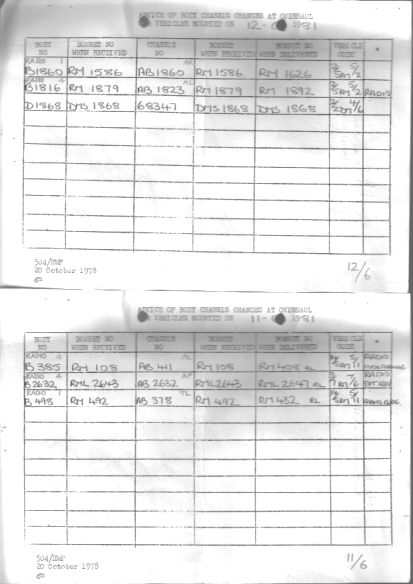 ADVICE OF BODY CHASSIS CHANGES AT OVERHAUL
VEHICLES MOUNTED ON 12- 1981
BODY NO BONNET NO WHEN RECEIVED CHASSIS NO BONNET NO WHEN RECEIVED BONNET NO WHEN DELIVERED VEHICLE CODE *
RADIO 1
B1860 RM 1586 AB1860 RM 1586. RM 1626
B1816 RM 1879 AB 1823 RM 1879 RM 1892 RADIO
D1868 DMS 1868 68347 DMS 1868 DMS 1868
504/HMP
20 October 1978
12/6
ADVICE OF BODY CHASSIS CHANGES AT OVERHAUL
VEHICLES MOUNTED ON 11- 1981
BODY NO BONNET NO WHEN RECEIVED CHASSIS NO BONNET NO WHEN RECEIVED BONNET NO WHEN DELIVERED VEHICLE CODE *
RADIO 4 AL RADIO
B385 RM 108 AB 411 RM 108 RM 408 RL
RADIO 4 RADIO
B2632 RML 2643 AB 2632 RML 2643 RML 2647 RL EXT ADV
RADIO 1 TL
B498 RM 492 AB 378 RM 492 RM 432 RL
504/HMP
20 October 1978
11/6